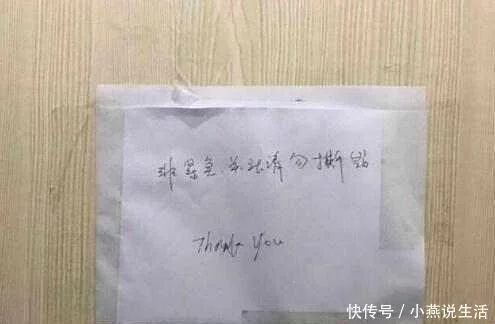 非紧急 请勿撕
Thank you
快传号/小燕说生活